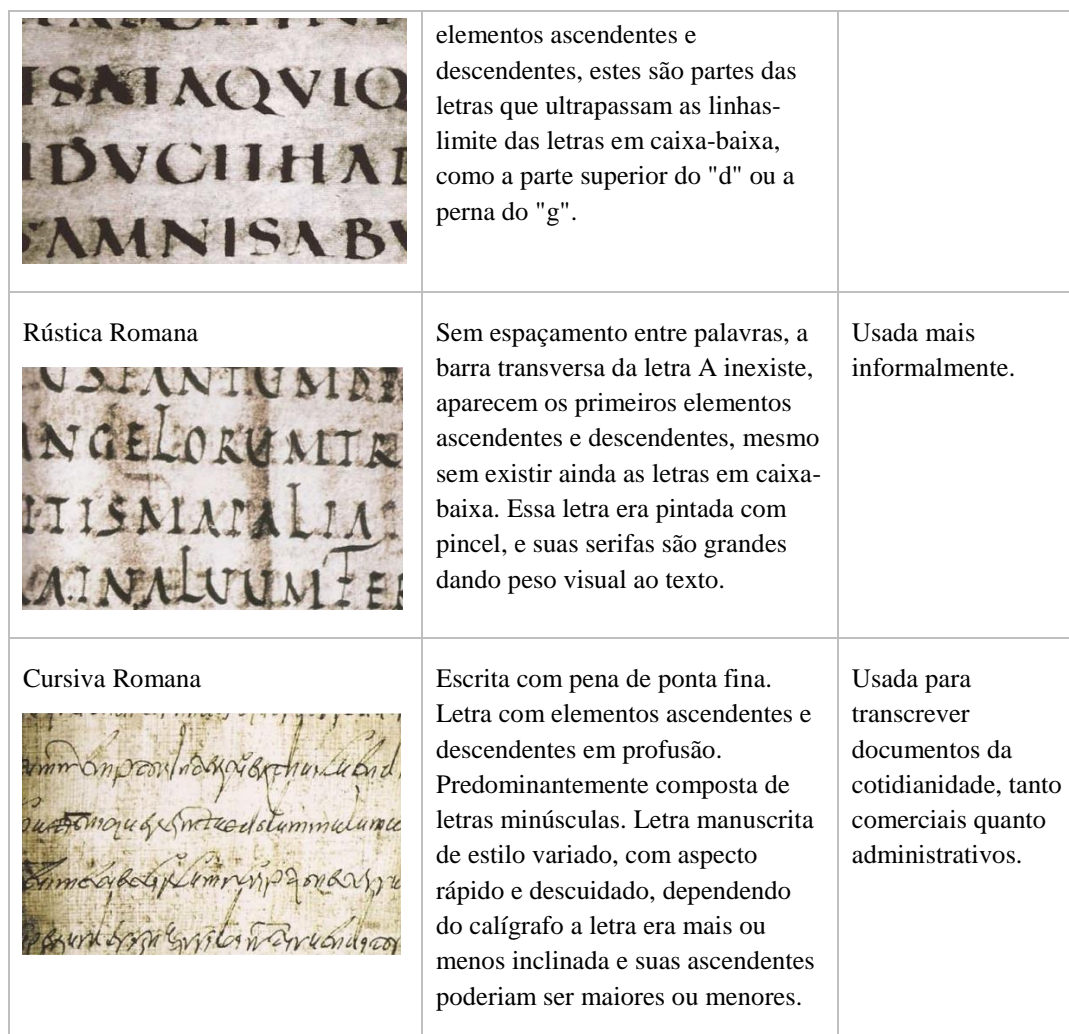 ISAIAQVIQ
IDVCIIHAD
SAMNISABV
elementos ascendentes e
descendentes, estes são partes das
letras que ultrapassam as linhas-
limite das letras em caixa-baixa,
como a parte superior do "d" ou a
perna do "g".
Rústica Romana
ANGELORUMTR
Sem espaçamento entre palavras, a
barra transversa da letra A inexiste,
aparecem os primeiros elementos
ascendentes e descendentes, mesmo
sem existir ainda as letras em caixa-
baixa. Essa letra era pintada com
pincel, e suas serifas são grandes
dando peso visual ao texto.
Usada mais
informalmente.
Cursiva Romana
Escrita com pena de ponta fina.
Letra com elementos ascendentes e
descendentes em profusão.
Predominantemente composta de
letras minúsculas. Letra manuscrita
de estilo variado, com aspecto
rápido e descuidado, dependendo
do calígrafo a letra era mais ou
menos inclinada e suas ascendentes
poderiam ser maiores ou menores.
Usada para
transcrever
documentos da
cotidianidade, tanto
comerciais quanto
administrativos.